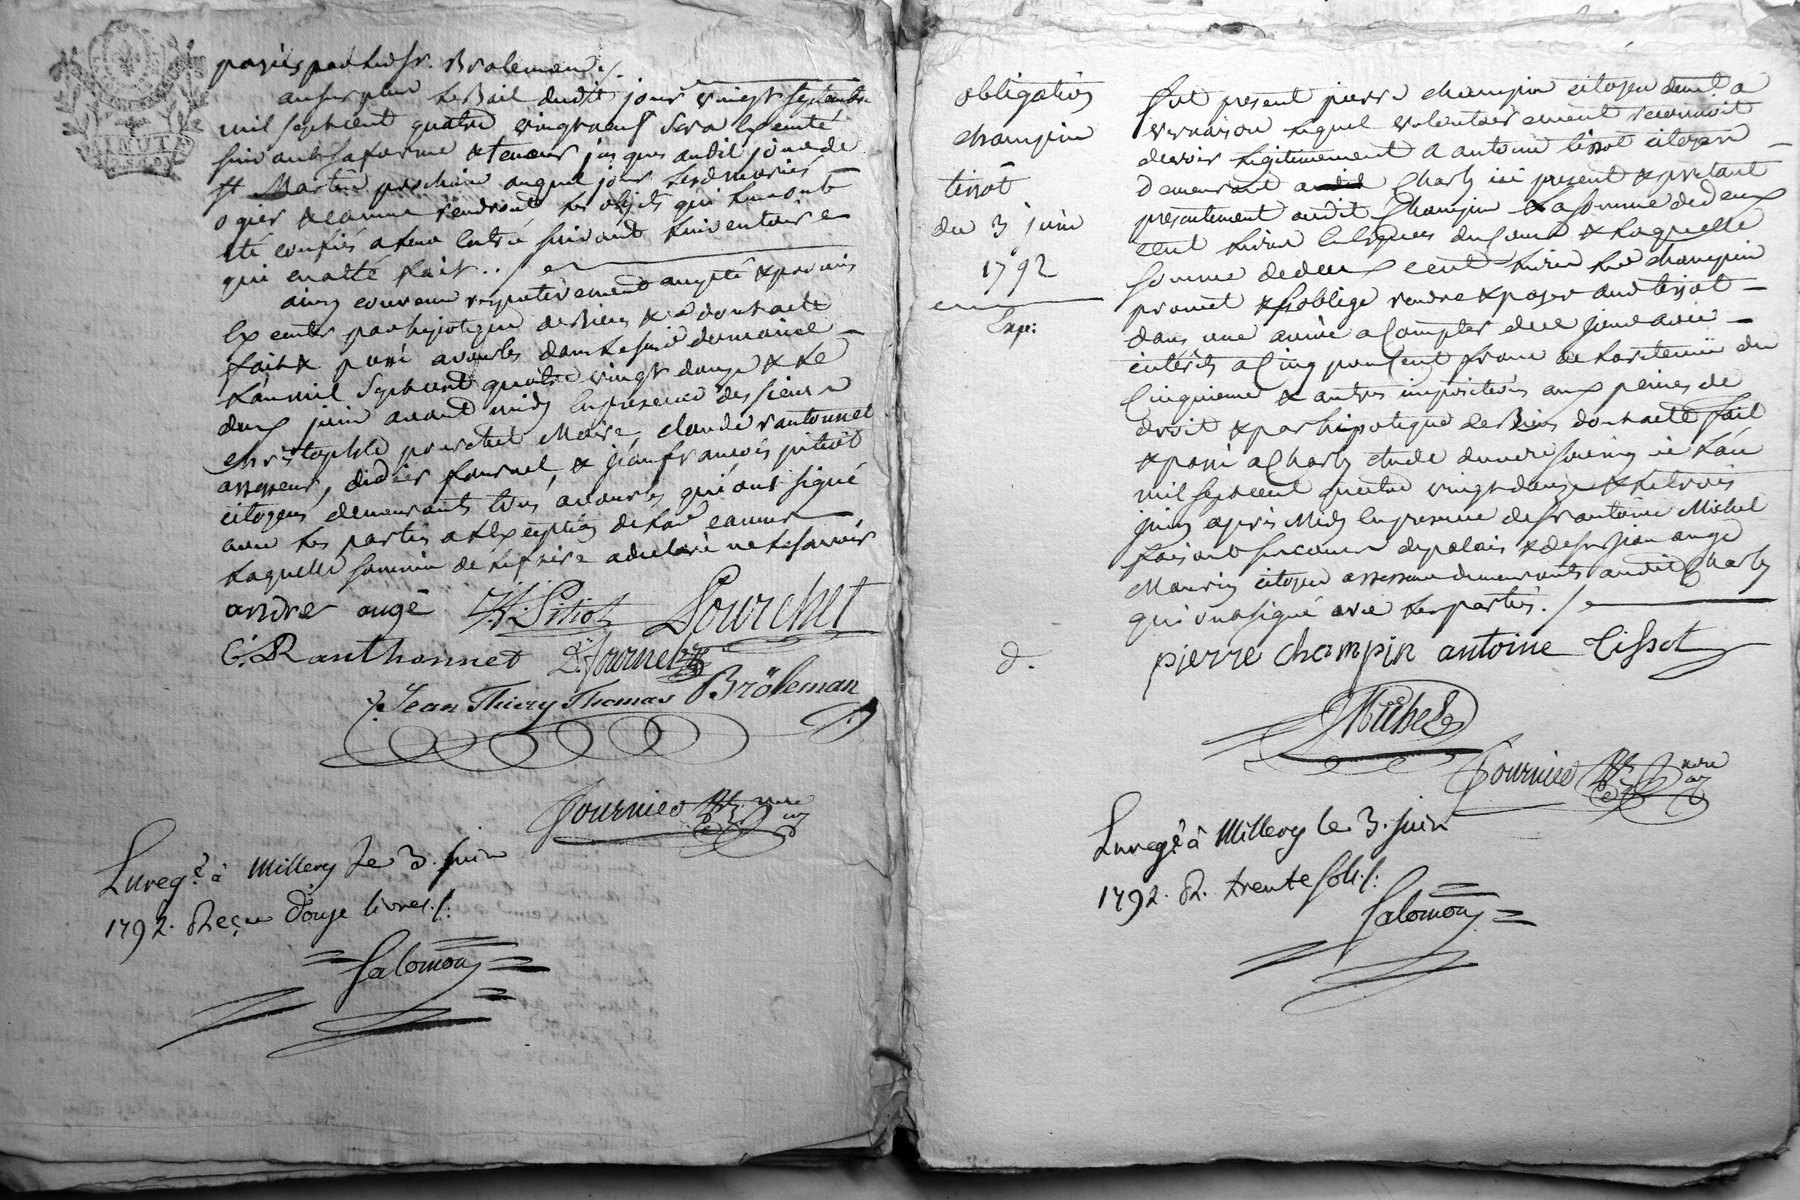 payés par led. sr. Broleman ./.
au surplus le Bail dudit jour vingt septembre
mil sept cent quatre vingt neuf sera exécuté
suivant sa forme & teneur jusques audit jour de
st Martin prochain auquel jour lesd mariés
ogier & camus rendront les objets qui leur ont
été confiés a leur entrée suivant linventaire
qui en a été fait ../.
ainsy convenu respectivement accepté & promis
executer par hypoteque de Biens & a dont acte
fait & passé a vourles dans le
l'an mil sept cent quatre vingt douze & le
deux juin avant midy en presence des sieurs
christophle pourchet Maire, claude rantonnet
assesseur, didier fournel, & jean francois pitiot
citoyens demeurants tous a vourles qui ont signé
avec les parties a l'exception de lad. camus
laquelle sommée de le faire a declaré ne le savoir
andre augé J. f. Pitiot Pourchet
C. Ranthonnet D. fournel
Jean Thiery Thomas Bröleman
Fournier nre
Enregé. à Millery le 3. Juin
1792. Reçu Douze livres ./.
Salomon
obligation
champin
tissot
du 3 juin
1792
Exp:
fut present pierre champin citoyen demt. a
vernaison lequel volontairement reconnoit
devoir legitimement a antoine tissot citoyen
demeurant audit Charly ici present & pretant
presentement audit Champin la somme de deux
cent livres en especes du cours & laquelle
somme de deux cent livres led champin
promet & s'oblige rendre & payer aud tissot
dans une année a compter de ce jour avec
intérêts a cinq pour cent franc de la retenue du
cinquieme & autres impositions aux peines de
droit & par hipoteque de Biens dont acte fait
& passé a Charly etude du nore soussigné l'an
mil sept cent quatre vingt douze & le trois
juin après Midy en presence de sr antoine Michel
faisant sa cour de palais & de sr jean ange
Maurin citoyen assesseur demeurants audit Charly
qui ont signé avec les parties. /.
d.
pierre champin antoine Tissot
Michel
Fournier nre
Enregé. à Millery le 3. Juin
1792. R. trente sols ./.
Salomon